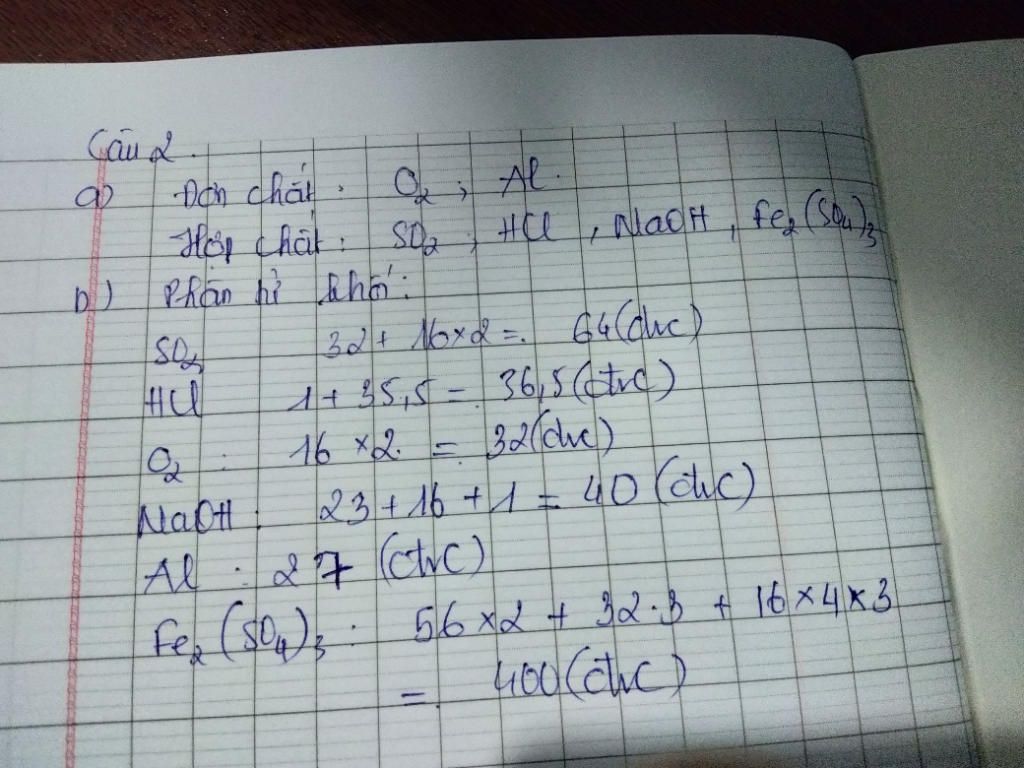 Câu 2.
a) Đơn chất: O₂, Al.
Hợp chất: SO₂, HCl, NaOH, Fe₂(SO₄)₃
b) Phân tử khối:
SO₂ 32 + 16 × 2 = 64 (đvC)
HCl 1 + 35,5 = 36,5 (đvC)
O₂ : 16 × 2 = 32 (đvC)
NaOH : 23 + 16 + 1 = 40 (đvC)
Al : 27 (đvC)
Fe₂(SO₄)₃ : 56 × 2 + 32 . 3 + 16 × 4 × 3
= 400 (đvC)